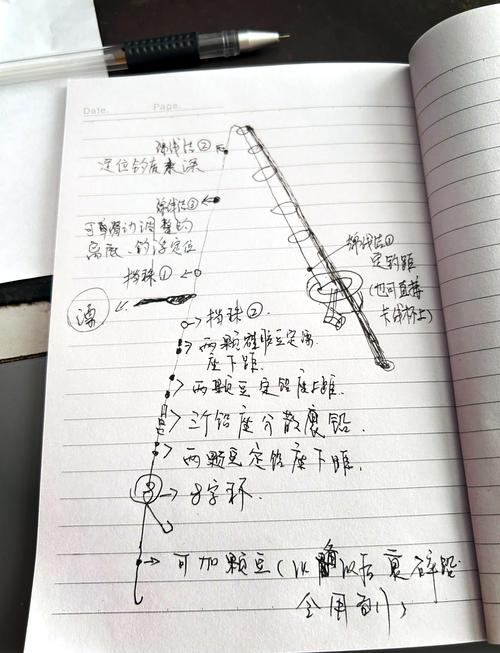 Date.
Page.
绵线结②
定位钓底表深
绵线结③
可剪滑动调整的
高度、钓浮定位
挡珠①
漂
绵线结①
定钓距
(也可直接
卡线杯上)
挡珠②.
两颗硅胶豆定漂
座下距.
两颗豆定铅座上距.
三个铅座分散裹铅.
两颗豆定铅座下距.
8字环.
可加颗豆(以后裹碎铅
会用到)